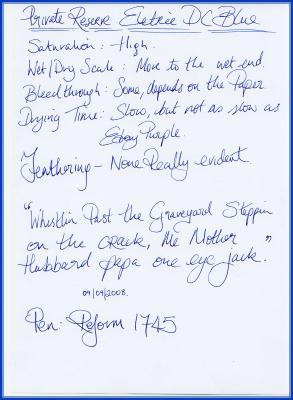 Private Reserve Electric DC Blue
Saturation: High.
Wet/Dry Scale: More to the wet end.
Bleedthrough: Some, depends on the Paper
Drying Time: Slow, but not as slow as
Ebony Purple.
Feathering - None Really evident
"Whistlin Past the Graveyard Steppin
on the crack, Me Mother
Hubbard papa one eye jack."
09/09/2008.
Pen: Reform 1745